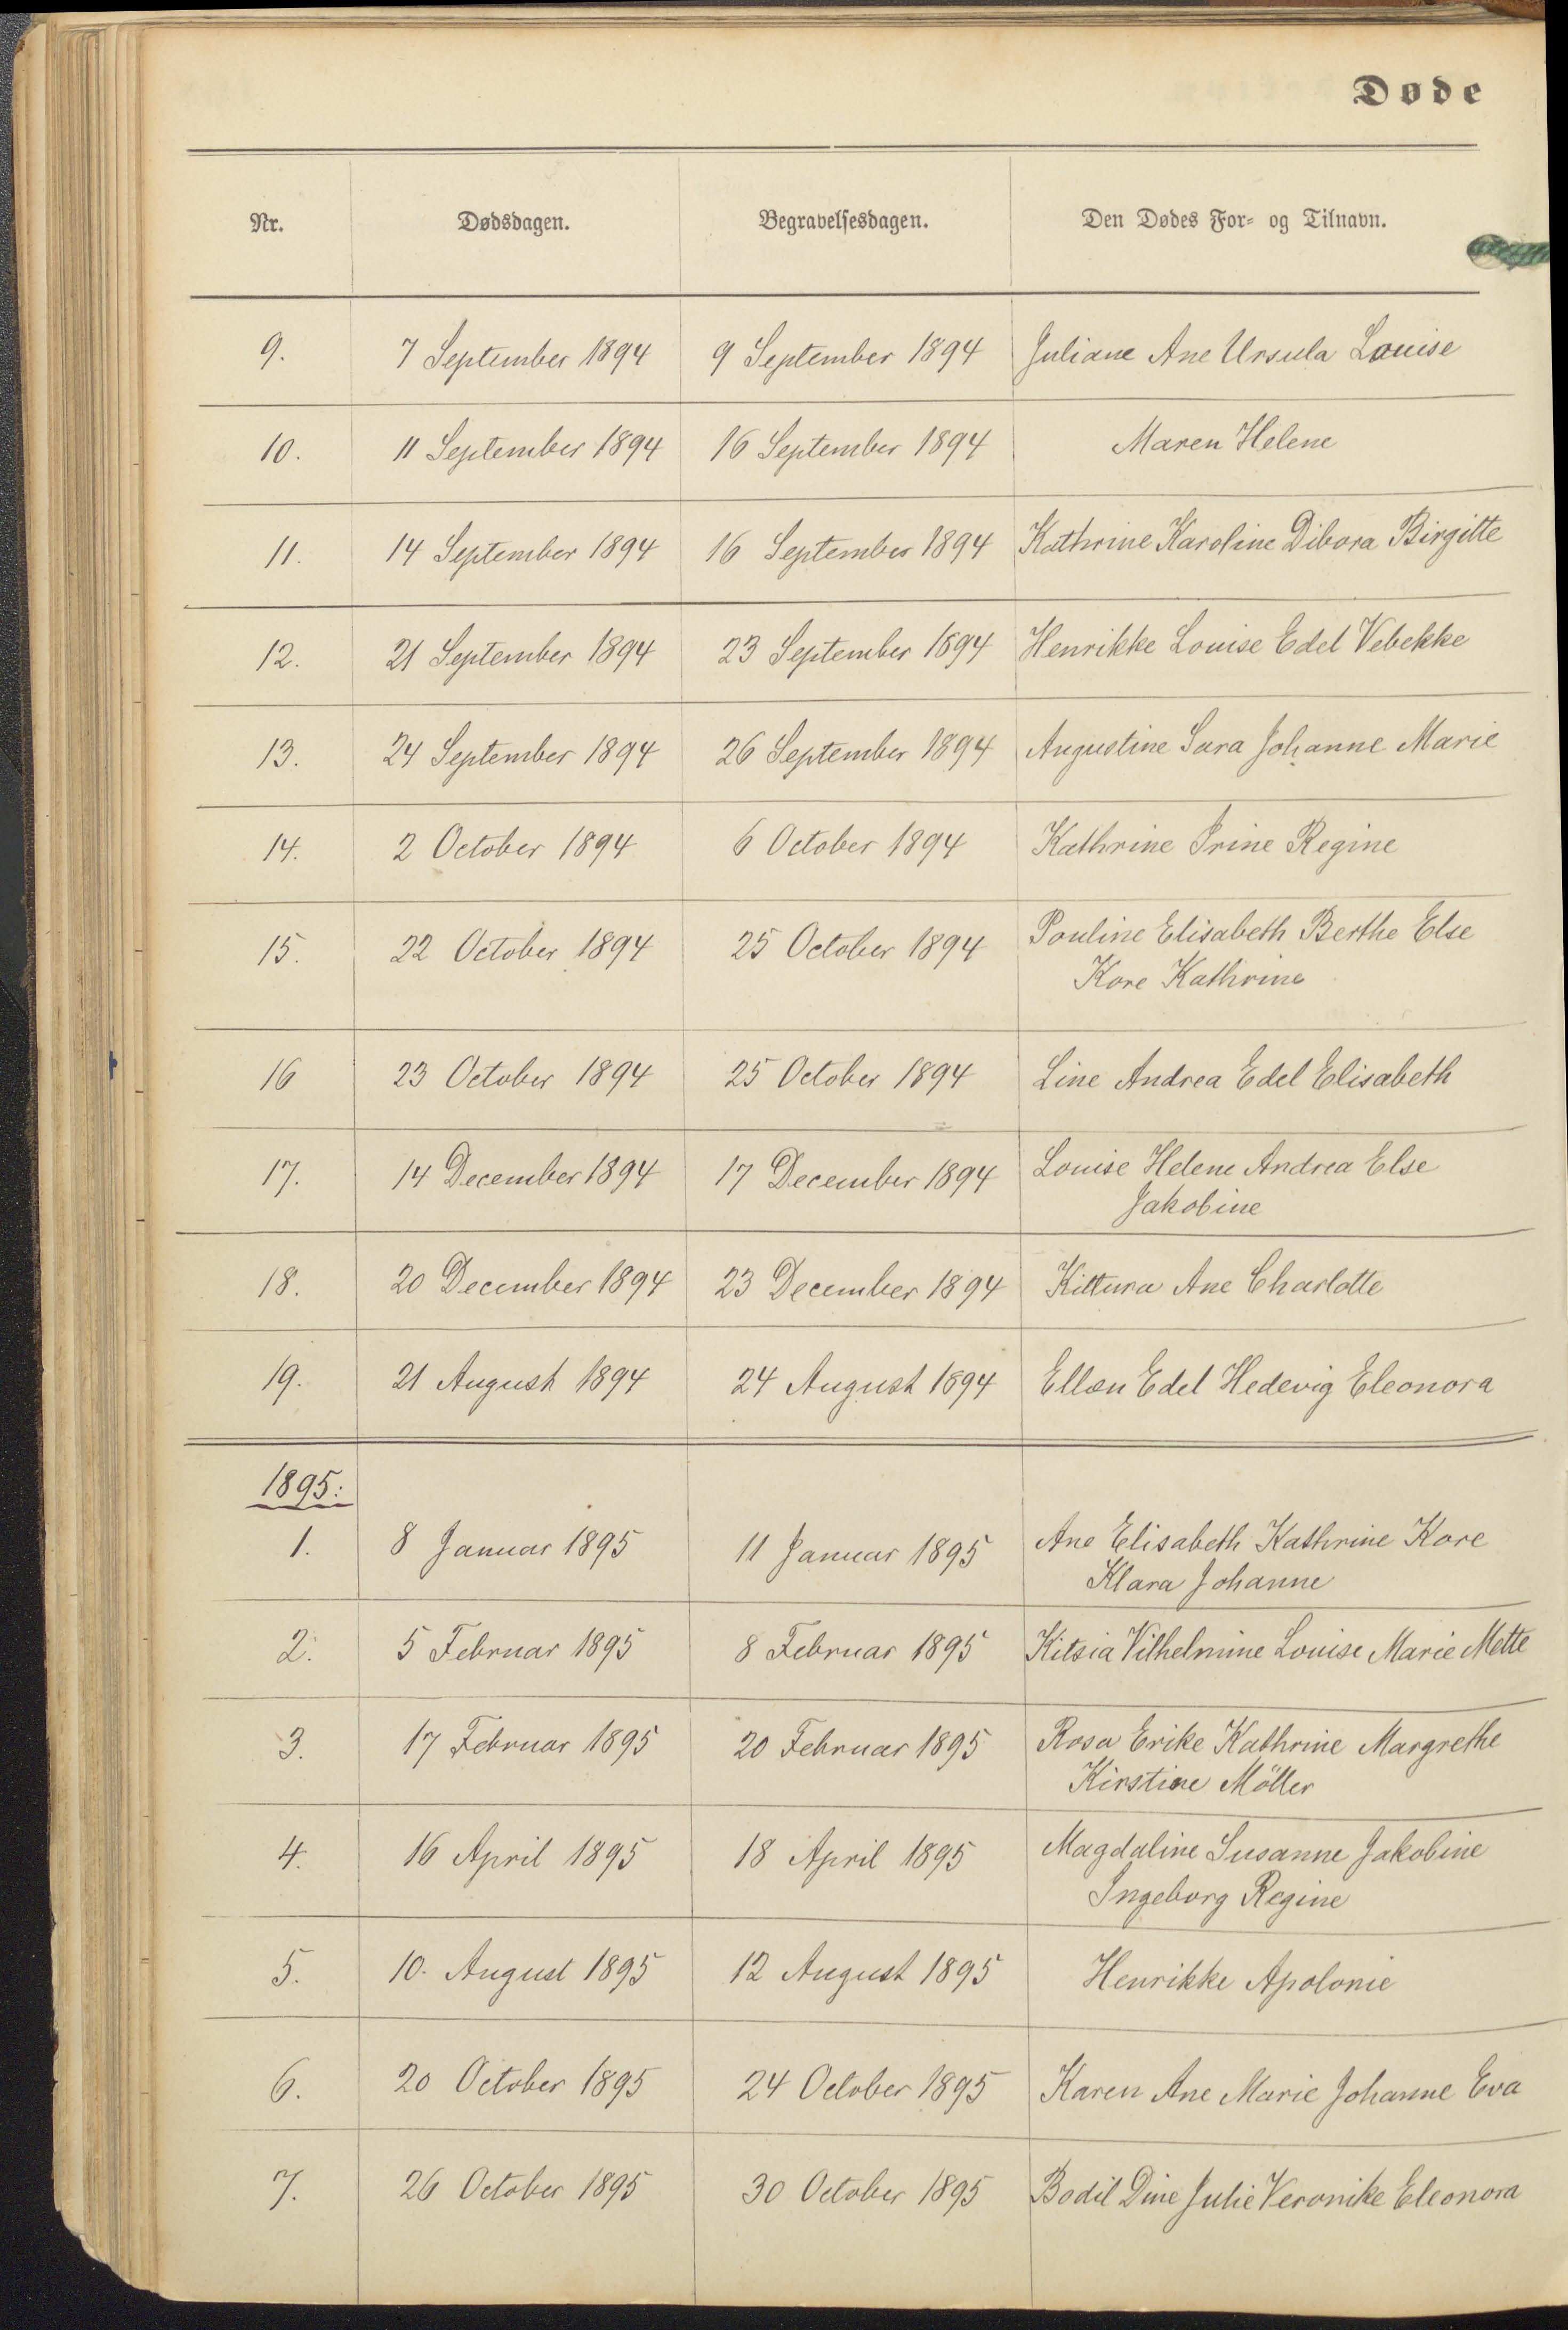 Døde
Nr. Dødsdagen. Begravelsesdagen. Den Dødes For- og Tilnavn.
9. 7 September 1894 9 September 1894 Juliane Ane Ursula Louise
10. 11 September 1894 16 September 1894 Maren Helene
11. 14 September 1894 16 September 1894 Kathrine Karoline Dibora Birgitte
12. 21 September 1894 23 September 1894 Henrikke Louise Edel Vebekke
13. 24 September 1894 26 September 1894 Augustine Sara Johanne Marie
14. 2 October 1894 6 October 1894 Kathrine Trine Regine
15. 22 October 1894 25 October 1894 Pouline Elisabeth Berthe Else
Kore Kathrine
16 23 October 1894 25 October 1894 Line Andrea Edel Elisabeth
17. 14 December 1894 17 December 1894 Louise Helene Andrea Else
Jakobine
18. 20 December 1894 23 December 1894 Kittura Ane Charlotte
19. 21 August 1894 24 August 1894 Ellen Edel Hedevig Eleonora
1895:
1. 8 Januar 1895 11 Januar 1895 Ane Elisabeth Kathrine Kore
Klara Johanne
2. 5 Februar 1895 8 Februar 1895 Kitsia Vilhelmine Louise Marie Mette
3. 17 Februar 1895 20 Februar 1895 Rosa Erike Kathrine Margrethe
Kirstine Möller
4. 16 April 1895 18 April 1895 Magdaline Susanne Jakobine
Ingeborg Regine
5. 10. August 1895 12 August 1895 Henrikke Apolonie
6. 20 October 1895 24 October 1895 Karen Ane Marie Johanne Eva
7. 26 October 1895 30 October 1895 Bodil Dine Julie Veronike Eleonora